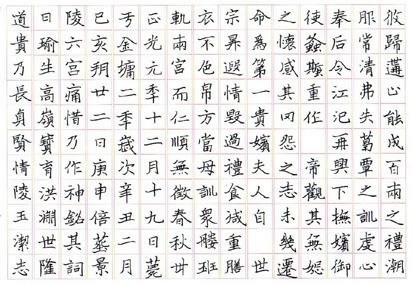 攸歸溝止能成百兩之禮潮
服常清弗失葛覃之訓虔心
奉后令江汜再興下撫嬪御
使螽斯重任帝觀其無恕
之懷感其罔怨之志未幾遷
命為第一貴嬪夫人自世
宗昇遐情毀過禮食減重膳
衣不色帛方當母訓衆媵班
軌兩宮而仁順無徵春秋卅
正光元秊十二月十九日薨
金墉二秊歲次辛丑二月
已亥朔廿二日庚申倍葬景
陵六宮痛惜乃作神銘其詞
日瑜生高嶺寶育洪澗世隆
道貴乃長貞賢情陵玉潔志